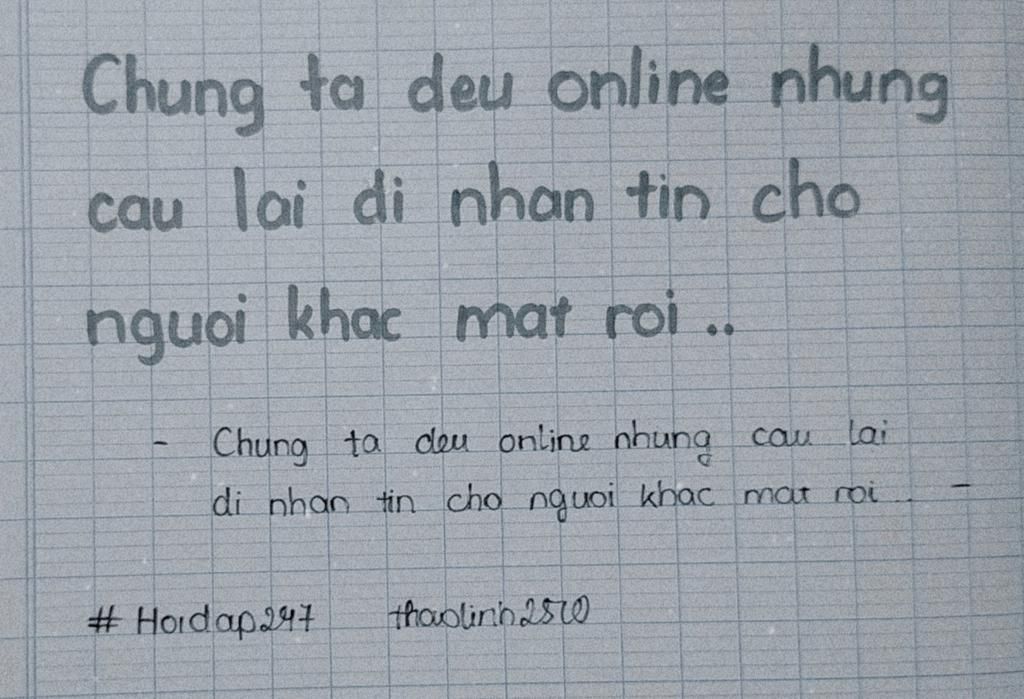 Chung ta deu online nhung
cau lai di nhan tin cho
nguoi khac mat roi ..
- Chung ta deu online nhung cau lai
di nhan tin cho nguoi khac mat roi .. -
# Hoidap247 thaolinh2510